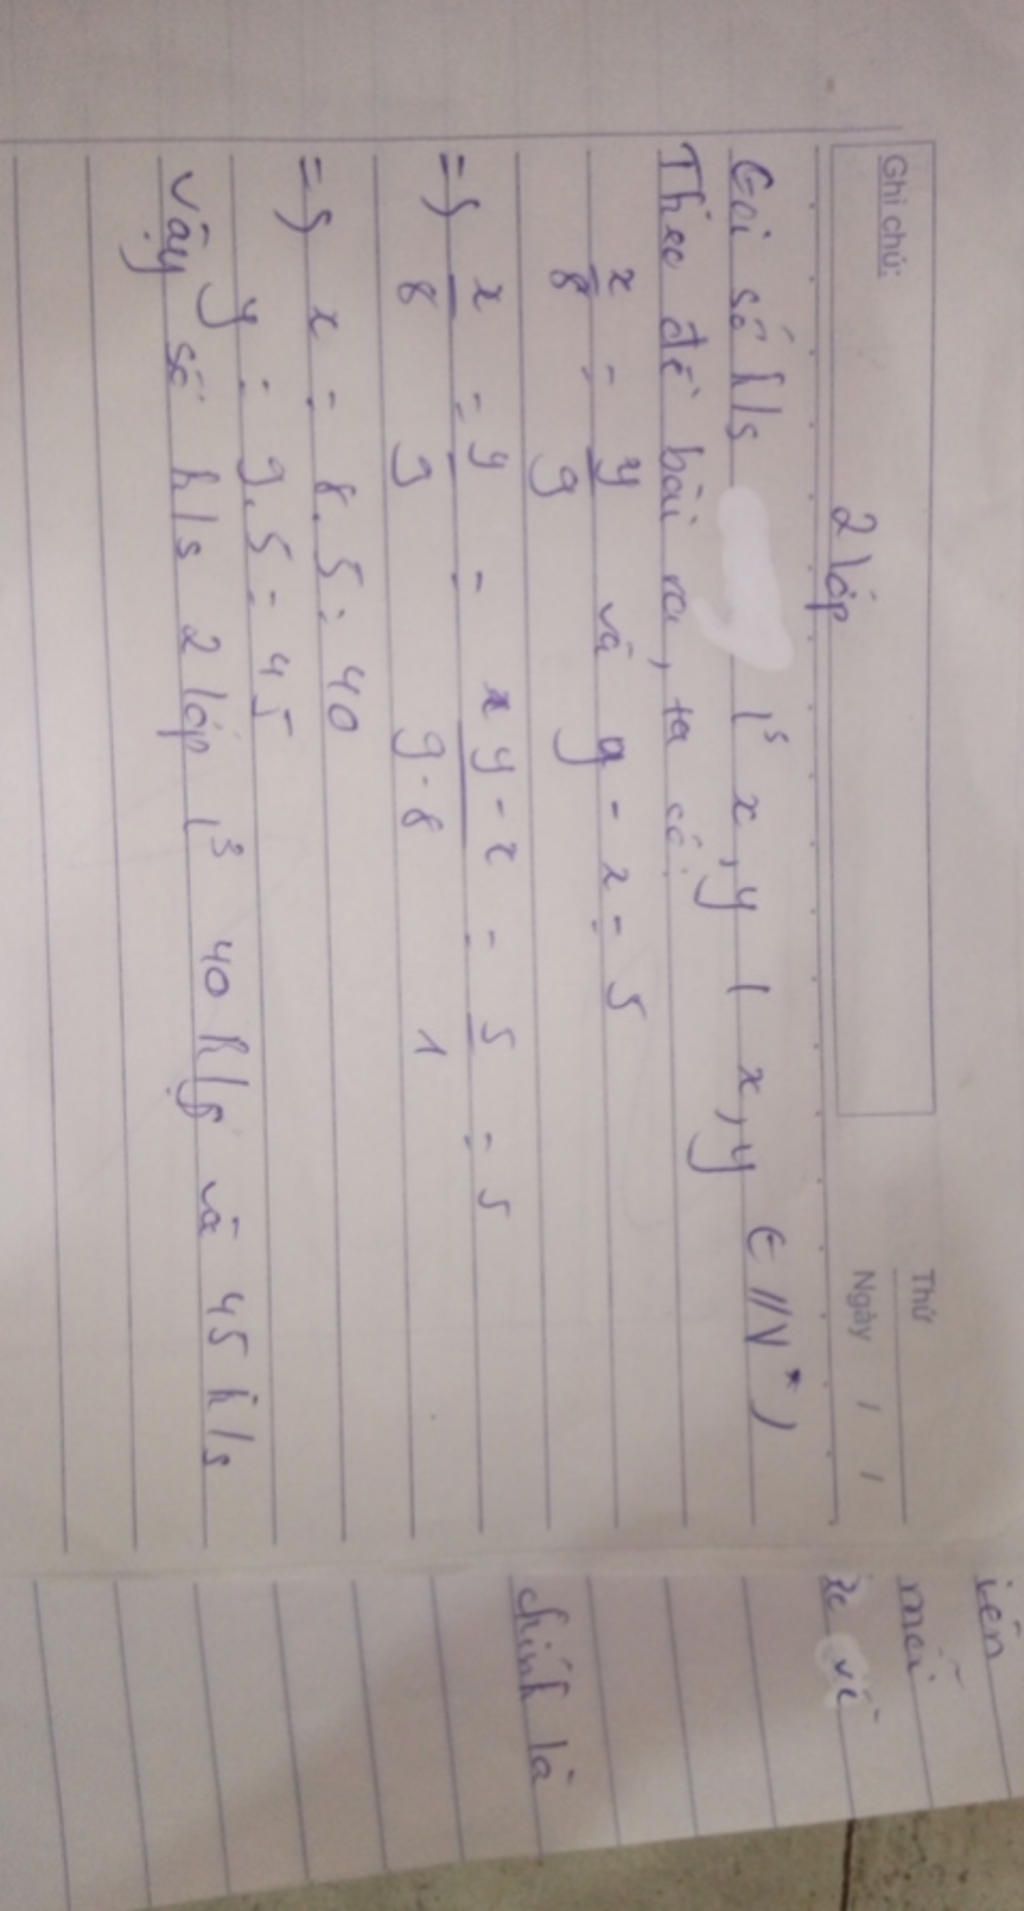 Ghi chú:
Thứ
Ngày / /
2 lớp
Gọi số h/s l³ x, y ( x, y ∈ N* )
Theo đề bài ra, ta có:
x/8 = y/9 và y - x = 5
=> x/8 = y/9 = y - x / 9 - 8 = 5/1 = 5
=> x = 8.5 = 40
y = 9.5 = 45
Vậy số h/s 2 lớp l³ 40 h/s và 45 h/s
iên
mỗi
vẽ
chính là